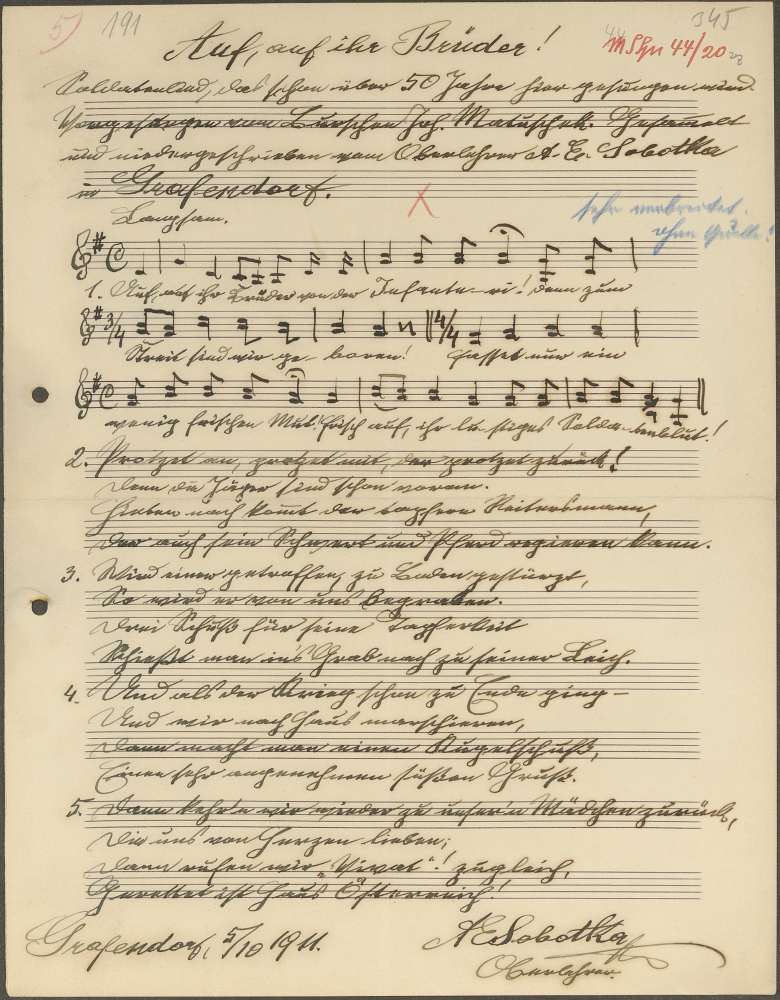 5) 191 345
Auf, auf ihr Brüder!
44
MShu 44/20
Soldatenlied, das schon über 50 Jahre hier gesungen wird.
Vorgesungen vom Burschen Joh. Matuschek. Gesammelt
und niedergeschrieben vom Oberlehrer A. E. Sobotka
in Grafendorf.
X
sehr verbreitet.
ohne Quelle!
Langsam.
1. Auf, auf ihr Brüder von der Infante-rie! denn zum
3/4 4/4
Streit sind wir ge-boren! Fasset nur ein
wenig frischen Mut! frisch auf, ihr lustiges Solda-tenblut!
2. Protzet an, protzet mit, der protzet zurück!
Denn die Jäger sind schon voran.
Hieben nach kommt der tapfere Reitersmann,
Der auch sein Schwert und Pferd regieren kann.
3. Wird einer getroffen, zu Boden gestürzt,
So wird er von uns begraben.
Drei Schuß für seine Tapferkeit
Schießt man in's Grab nach zu seiner Leich.
4. Und als der Krieg schon zu Ende ging –
Und wir nach Haus marschieren,
Dann macht man einen Kugelschuß,
Einen sehr angenehmen süßen Gruß.
5. Dann kehr'n wir wieder zu unser'n Mädchen zurück,
Die uns von Herzen lieben;
Dann rufen wir „Vivat“! zugleich,
Gerettet ist Haus Österreich!
Grafendorf, 5/10 1911. AESobotka
Oberlehrer.